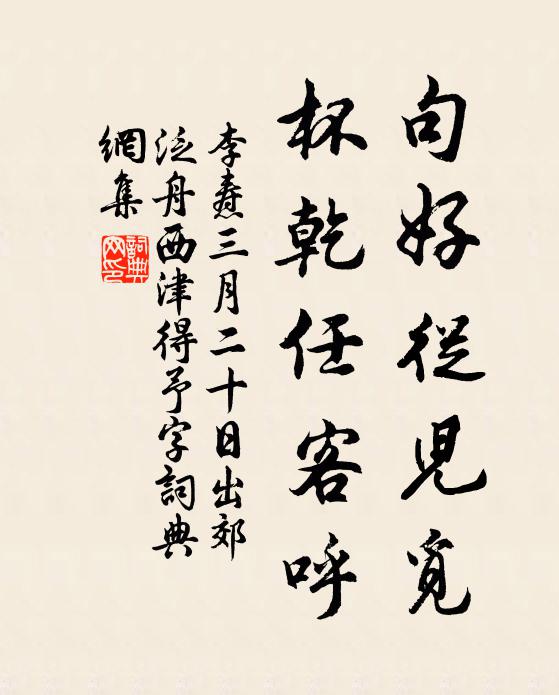 句好從兒覓
杯乾任客呼
李燾三月二十日出郊
泛舟西津得予字詞典
網集
詞典網印